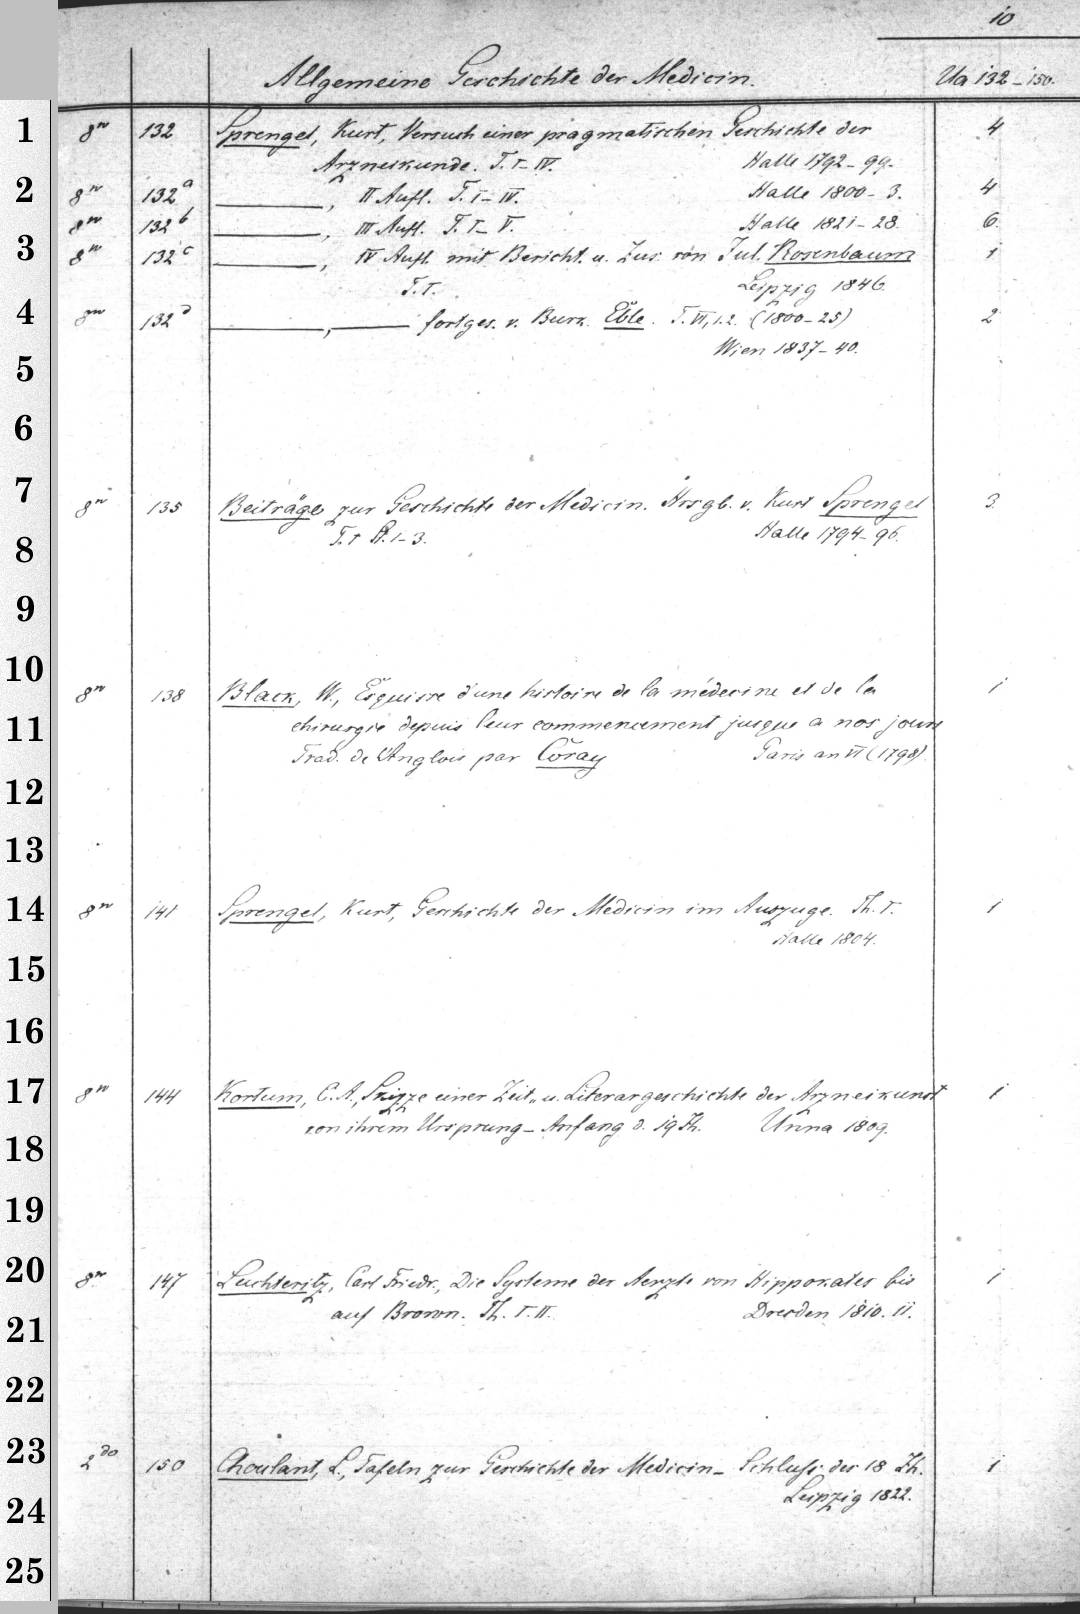 10
Allgemeine Geschichte der Medicin. Ua 132-150.
1 8vo 132 Sprengel, Kurt, Versuch einer pragmatischen Geschichte der 4
Arzneikunde. T. I-IV. Halle 1792-99.
2 8vo 132a ———, II Aufl. T. I-IV. Halle 1800-3. 4
8vo 132b ———, III Aufl. T. I-V. Halle 1821-28. 6.
3 8vo 132c ———, IV Aufl. mit Bericht. u. Zus. von Jul. Rosenbaum 1
T. I. Leipzig 1846
4 8vo 132d ———, ——— fortges. v. Burk. Eble. T. VI, 1.2. (1800-25) 2
Wien 1837-40.
5
6
7 8vo 135 Beiträge zur Geschichte der Medicin. Hrsgb. v. Kurt Sprengel 3.
T. 1 St. 1-3. Halle 1794-96.
8
9
10 8vo 138 Black, W., Esquisse d'une histoire de la médecine et de la 1
11 chirurgie depuis leur commencement jusque a nos jours
Trad. de l'Anglois par Coray Paris an VI (1798).
12
13
14 8vo 141 Sprengel, Kurt, Geschichte der Medicin im Auszuge. Th. I. 1
Halle 1804.
15
16
17 8vo 144 Kortum, C. A., Skizze einer Zeit- u. Literargeschichte der Arzneikunst 1
von ihrem Ursprung - Anfang d. 19 Jh. Unna 1809.
18
19
20 8vo 147 Leuchteritz, Carl Friedr., Die Systeme der Aerzte von Hippokates bis 1
auf Brown. Th. I. II. Dresden 1810. 11.
21
22
23 2do 150 Choulant, L., Tafeln zur Geschichte der Medicin - Schluss des 18 Jh. 1
24 Leipzig 1822.
25